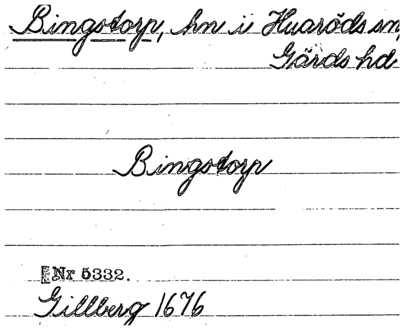 Bingstorp, hn i Huaröds sn,
Gärds hd
Bingstorp
Nr 5332.
Gillberg 1676